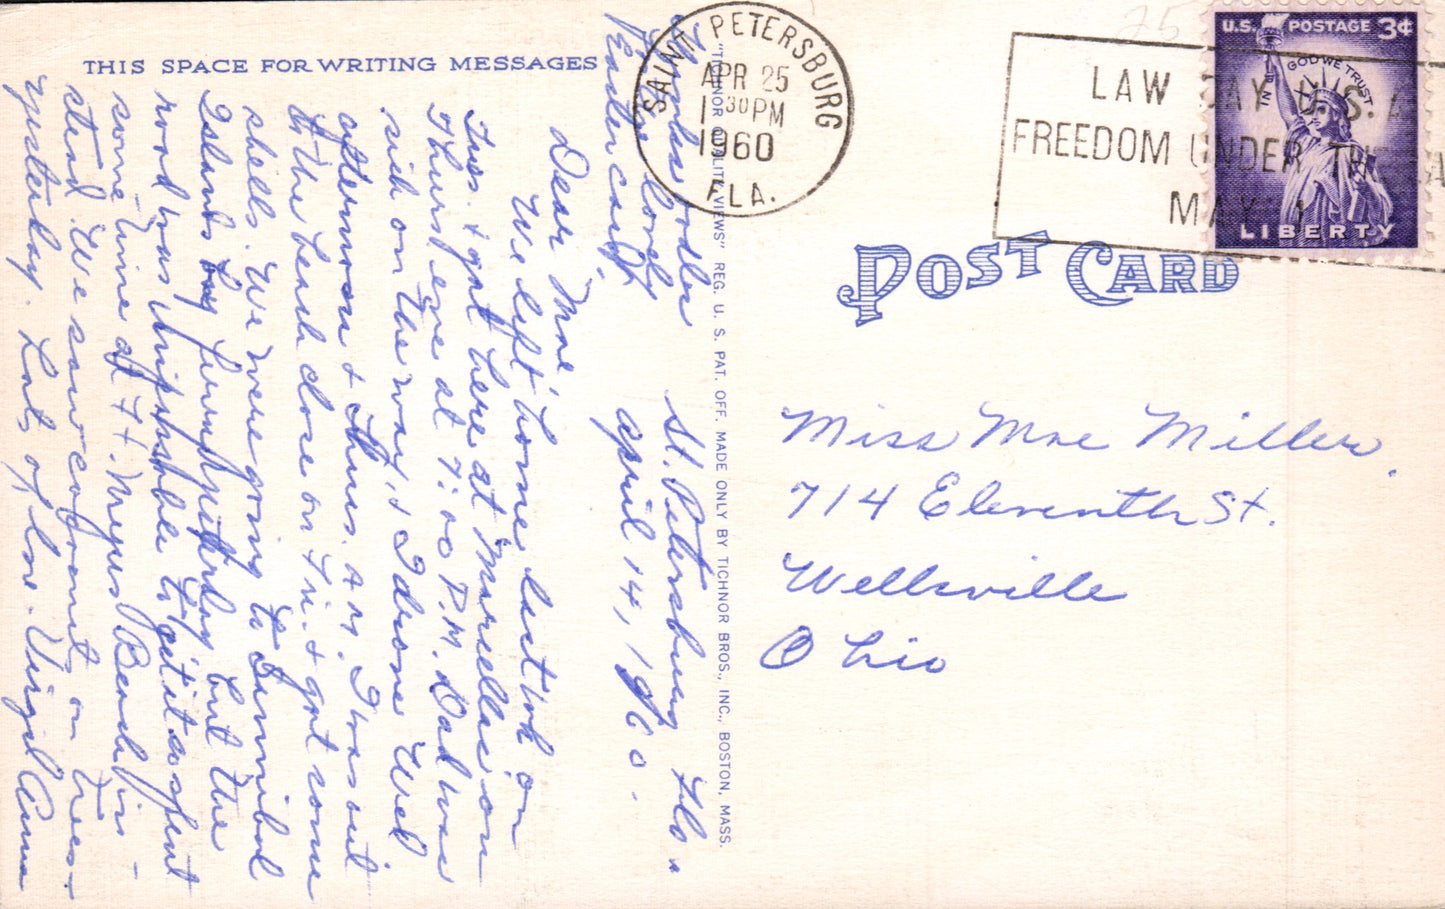 THIS SPACE FOR WRITING MESSAGES
St. Petersburg Fla.
April 14, 1960.
Dear Mae,
We left home last wk on
Tues. & got here at Marcellas on
Thurs eve at 7:00 P.M. Dad was
sick on the way, & I drove Wed
afternoon & Thurs. A.M. I was out
to the beach close on Fri. & got some
shells. We were going to Sanibel
Islands by yesterday but the
road was to get it so spent
some time at Ft. Myers Beach in-
stead. We saw coconuts on trees-
yesterday. Lots of love. Virgil Anna
Thanks oodles
for the lovely
Easter card.
"TICHNOR QUALITY VIEWS" REG. U. S. PAT. OFF. MADE ONLY BY TICHNOR BROS., INC., BOSTON, MASS.
SAINT PETERSBURG
APR 25
30 PM
1960
FLA.
LAW DAY U.S.A
FREEDOM UNDER
MAY 1
U.S. POSTAGE 3¢
IN GOD WE TRUST
LIBERTY
POST CARD
Miss Mae Miller.
714 Eleventh St.
Wellsville
Ohio